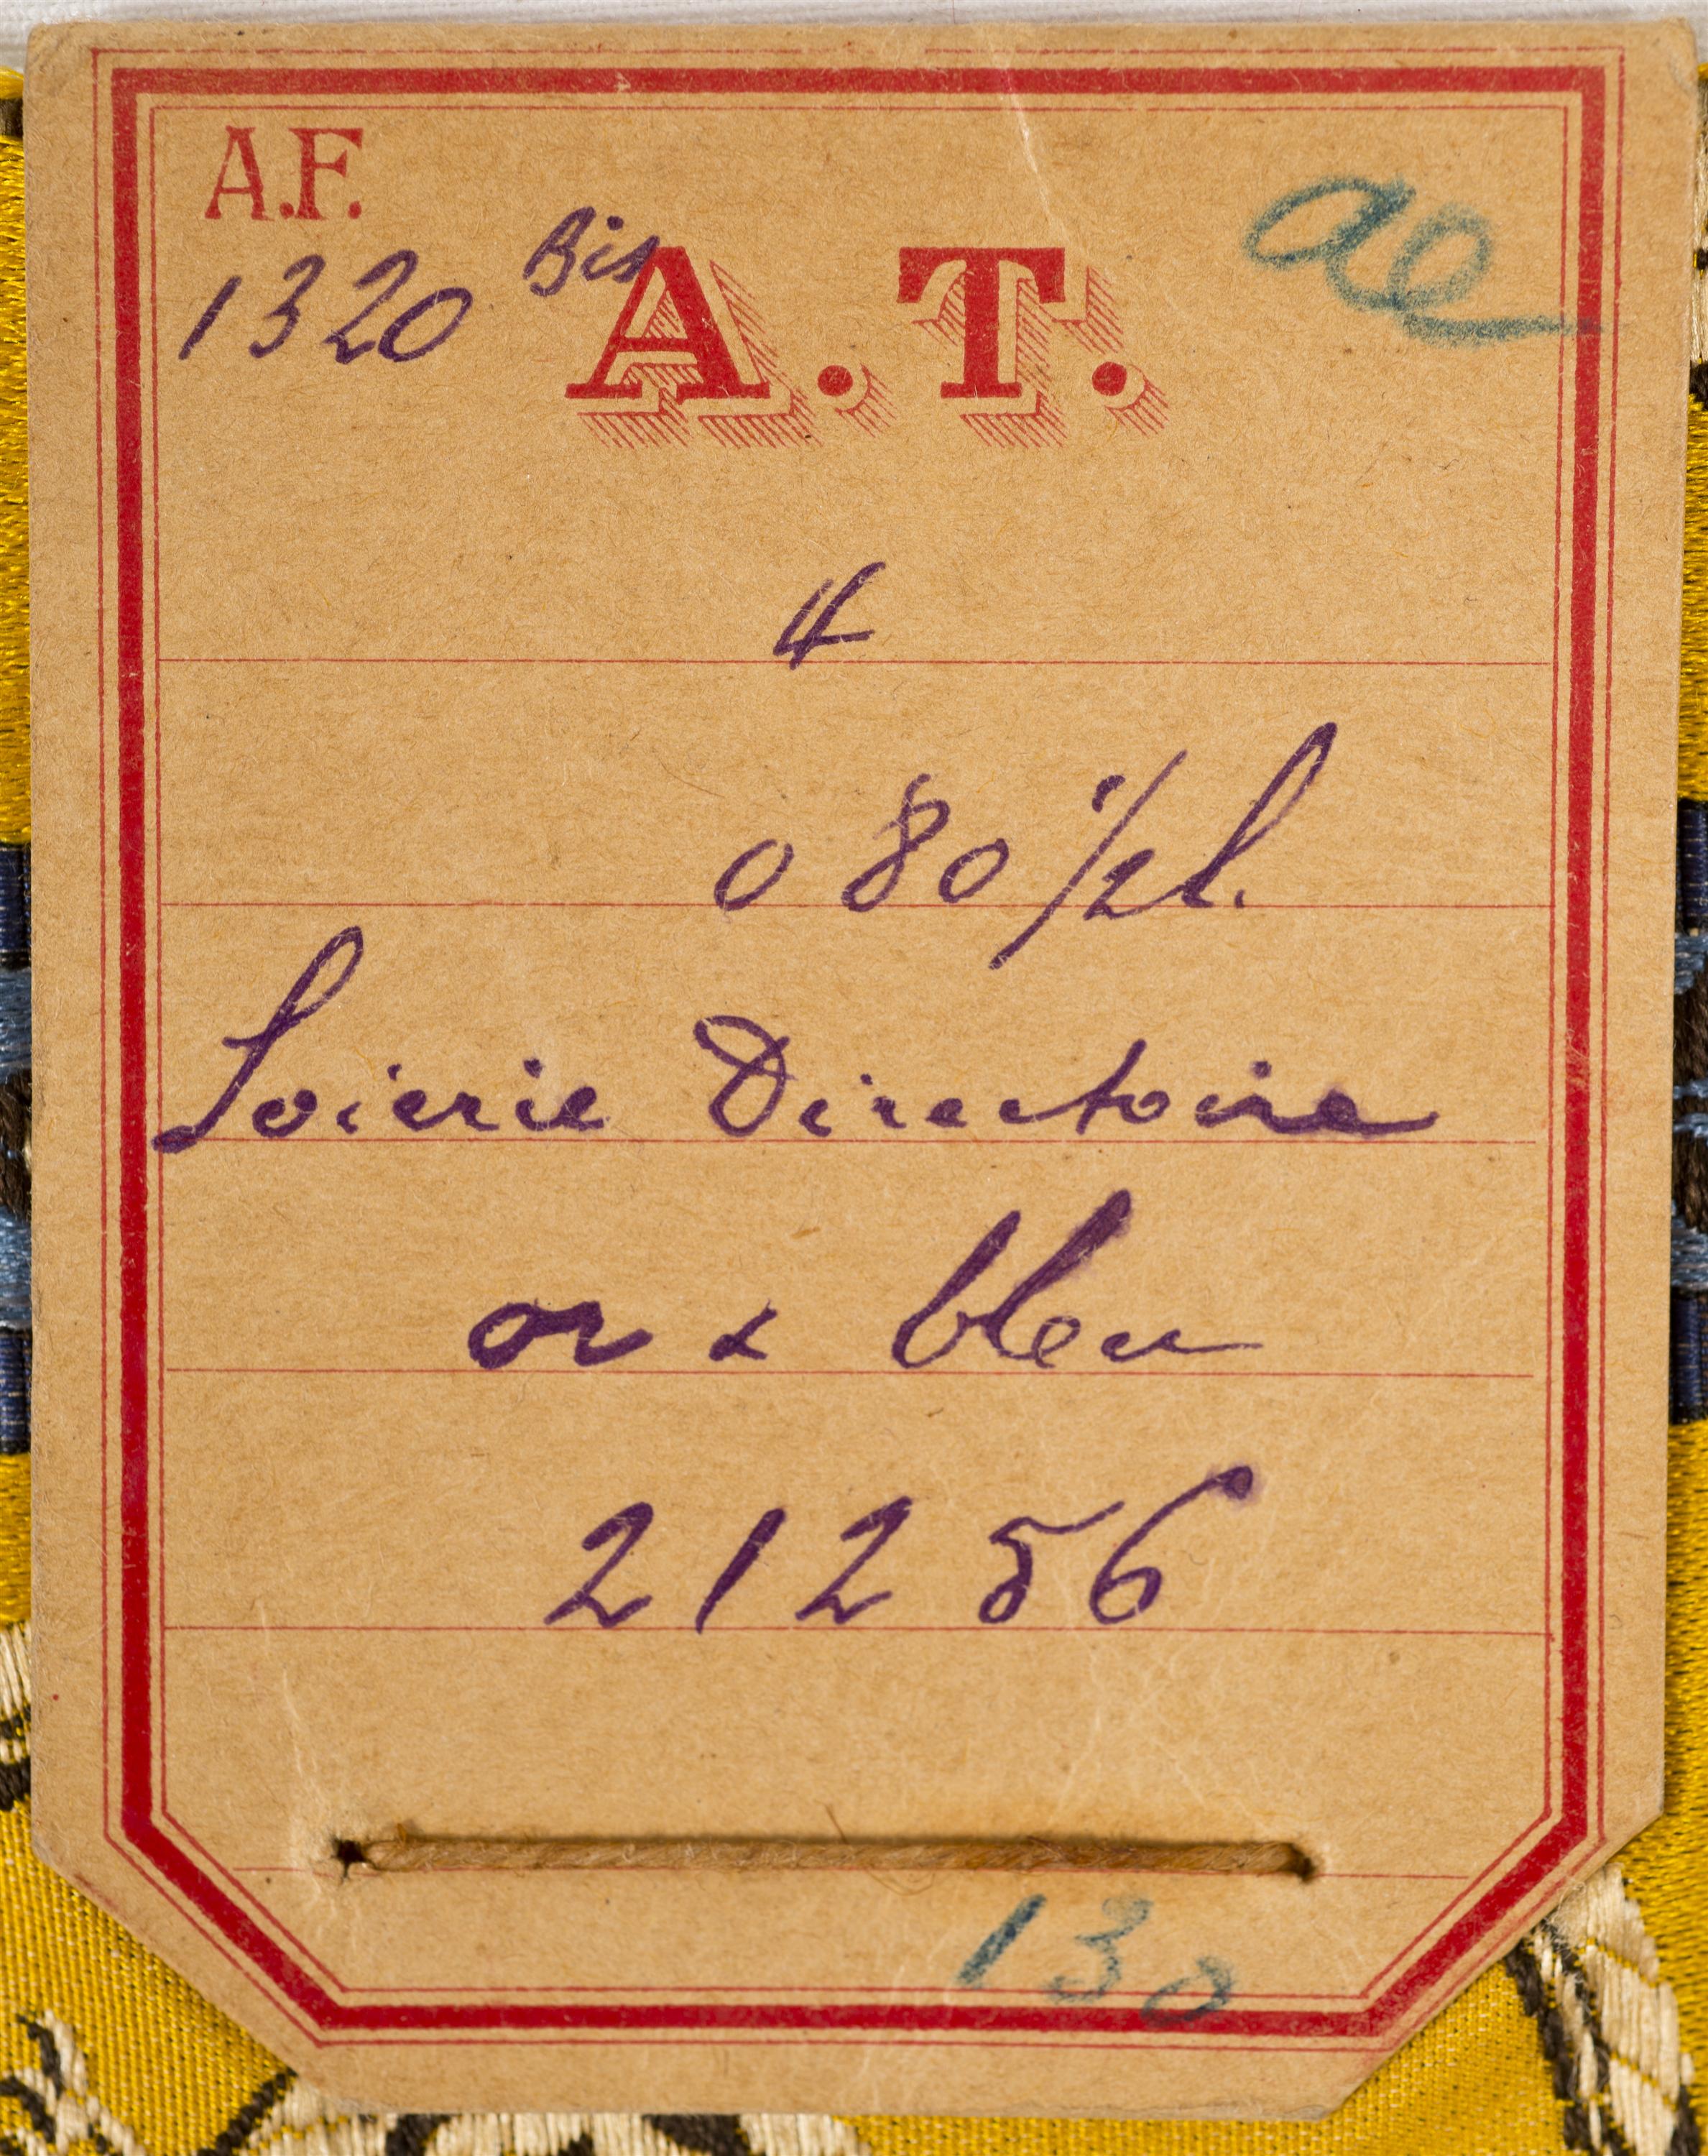 A.F.
1320 Bis
A.T.
ae
4
0 80 1/2 l.
Soierie Directoire
or & bleu
21256
130